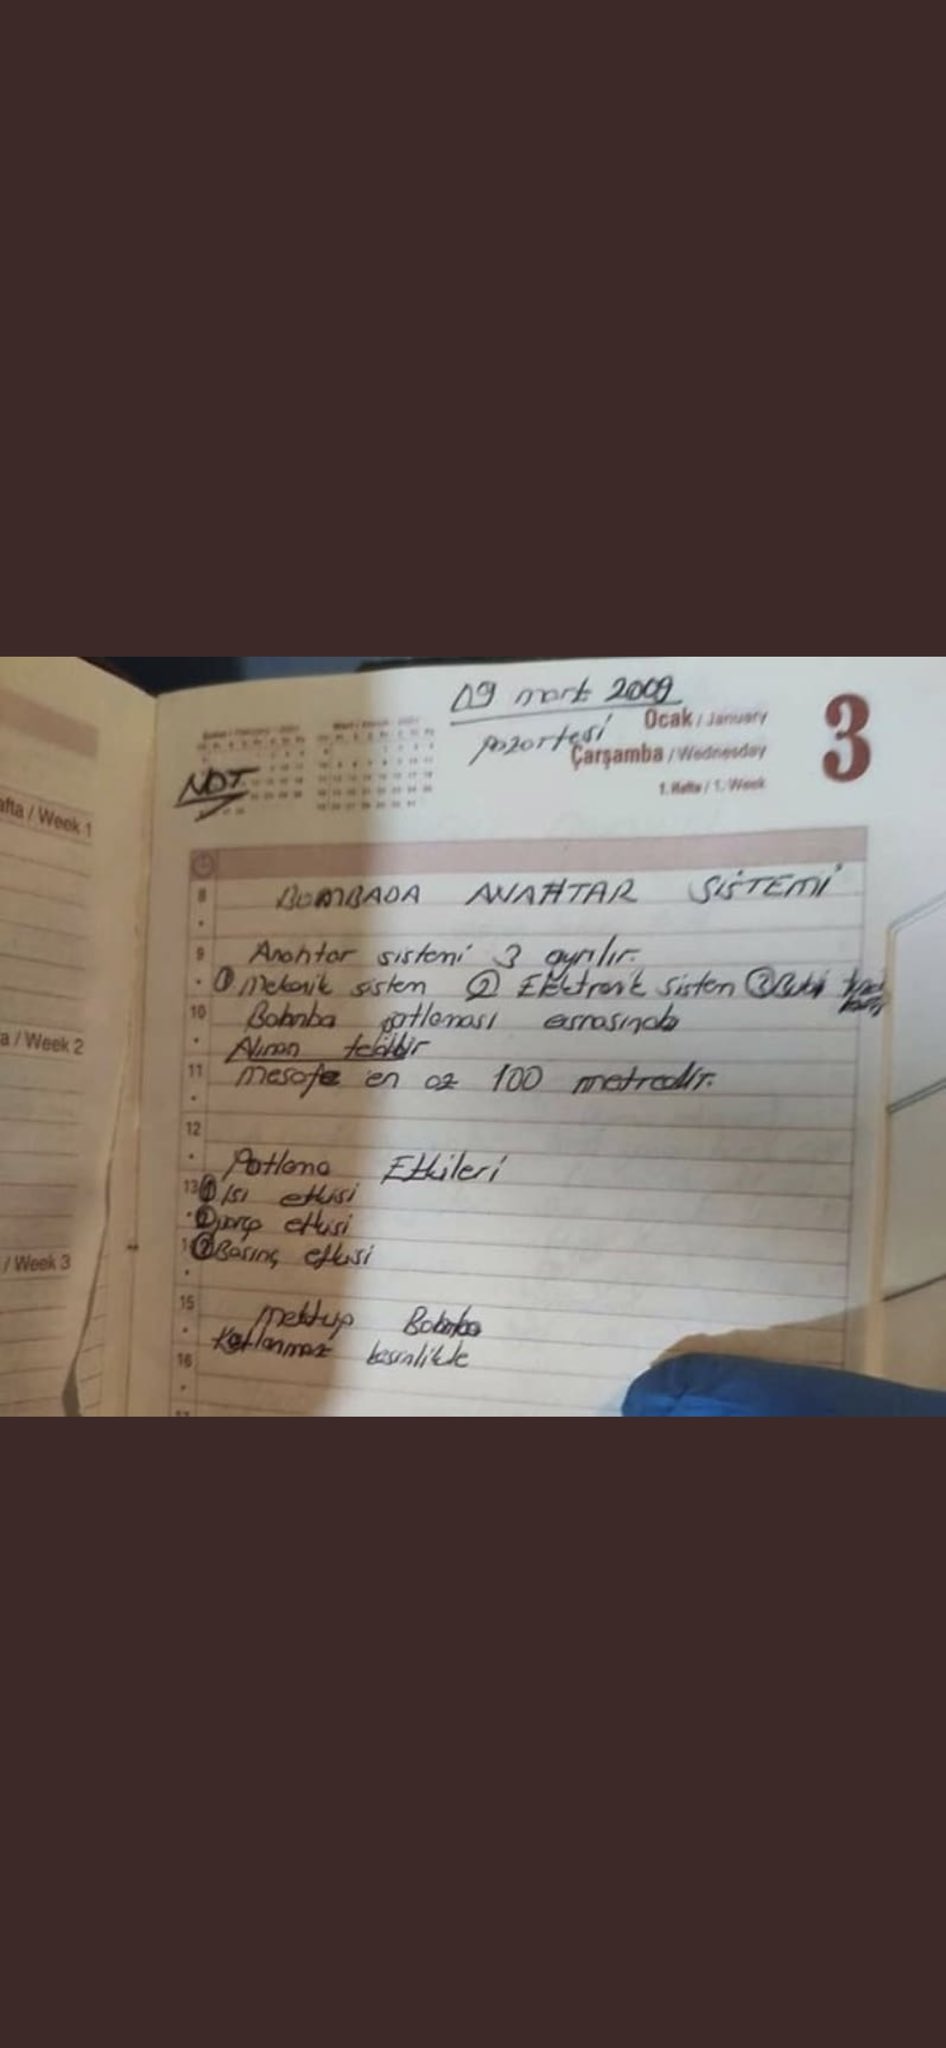 09 mart 2009
pazartesi
Ocak / January
Çarşamba / Wednesday
1. Hafta / 1. Week
3
NOT
afta / Week 1
a / Week 2
/ Week 3
8 BOMBADA ANAHTAR SİSTEMİ
9 Anahtar sistemi 3 ayrılır.
① Mekanik sistem ② Elektronik sistem ③
10 Bobmba patlaması esnasında
Alınan tedbir
11 mesafe en az 100 metredir.
12
Patlama Etkileri
13 ① Isı etkisi
② parça etkisi
③ Basınç etkisi
15 mektup Bobmba
Katlanmaz kesinlikle
16
17